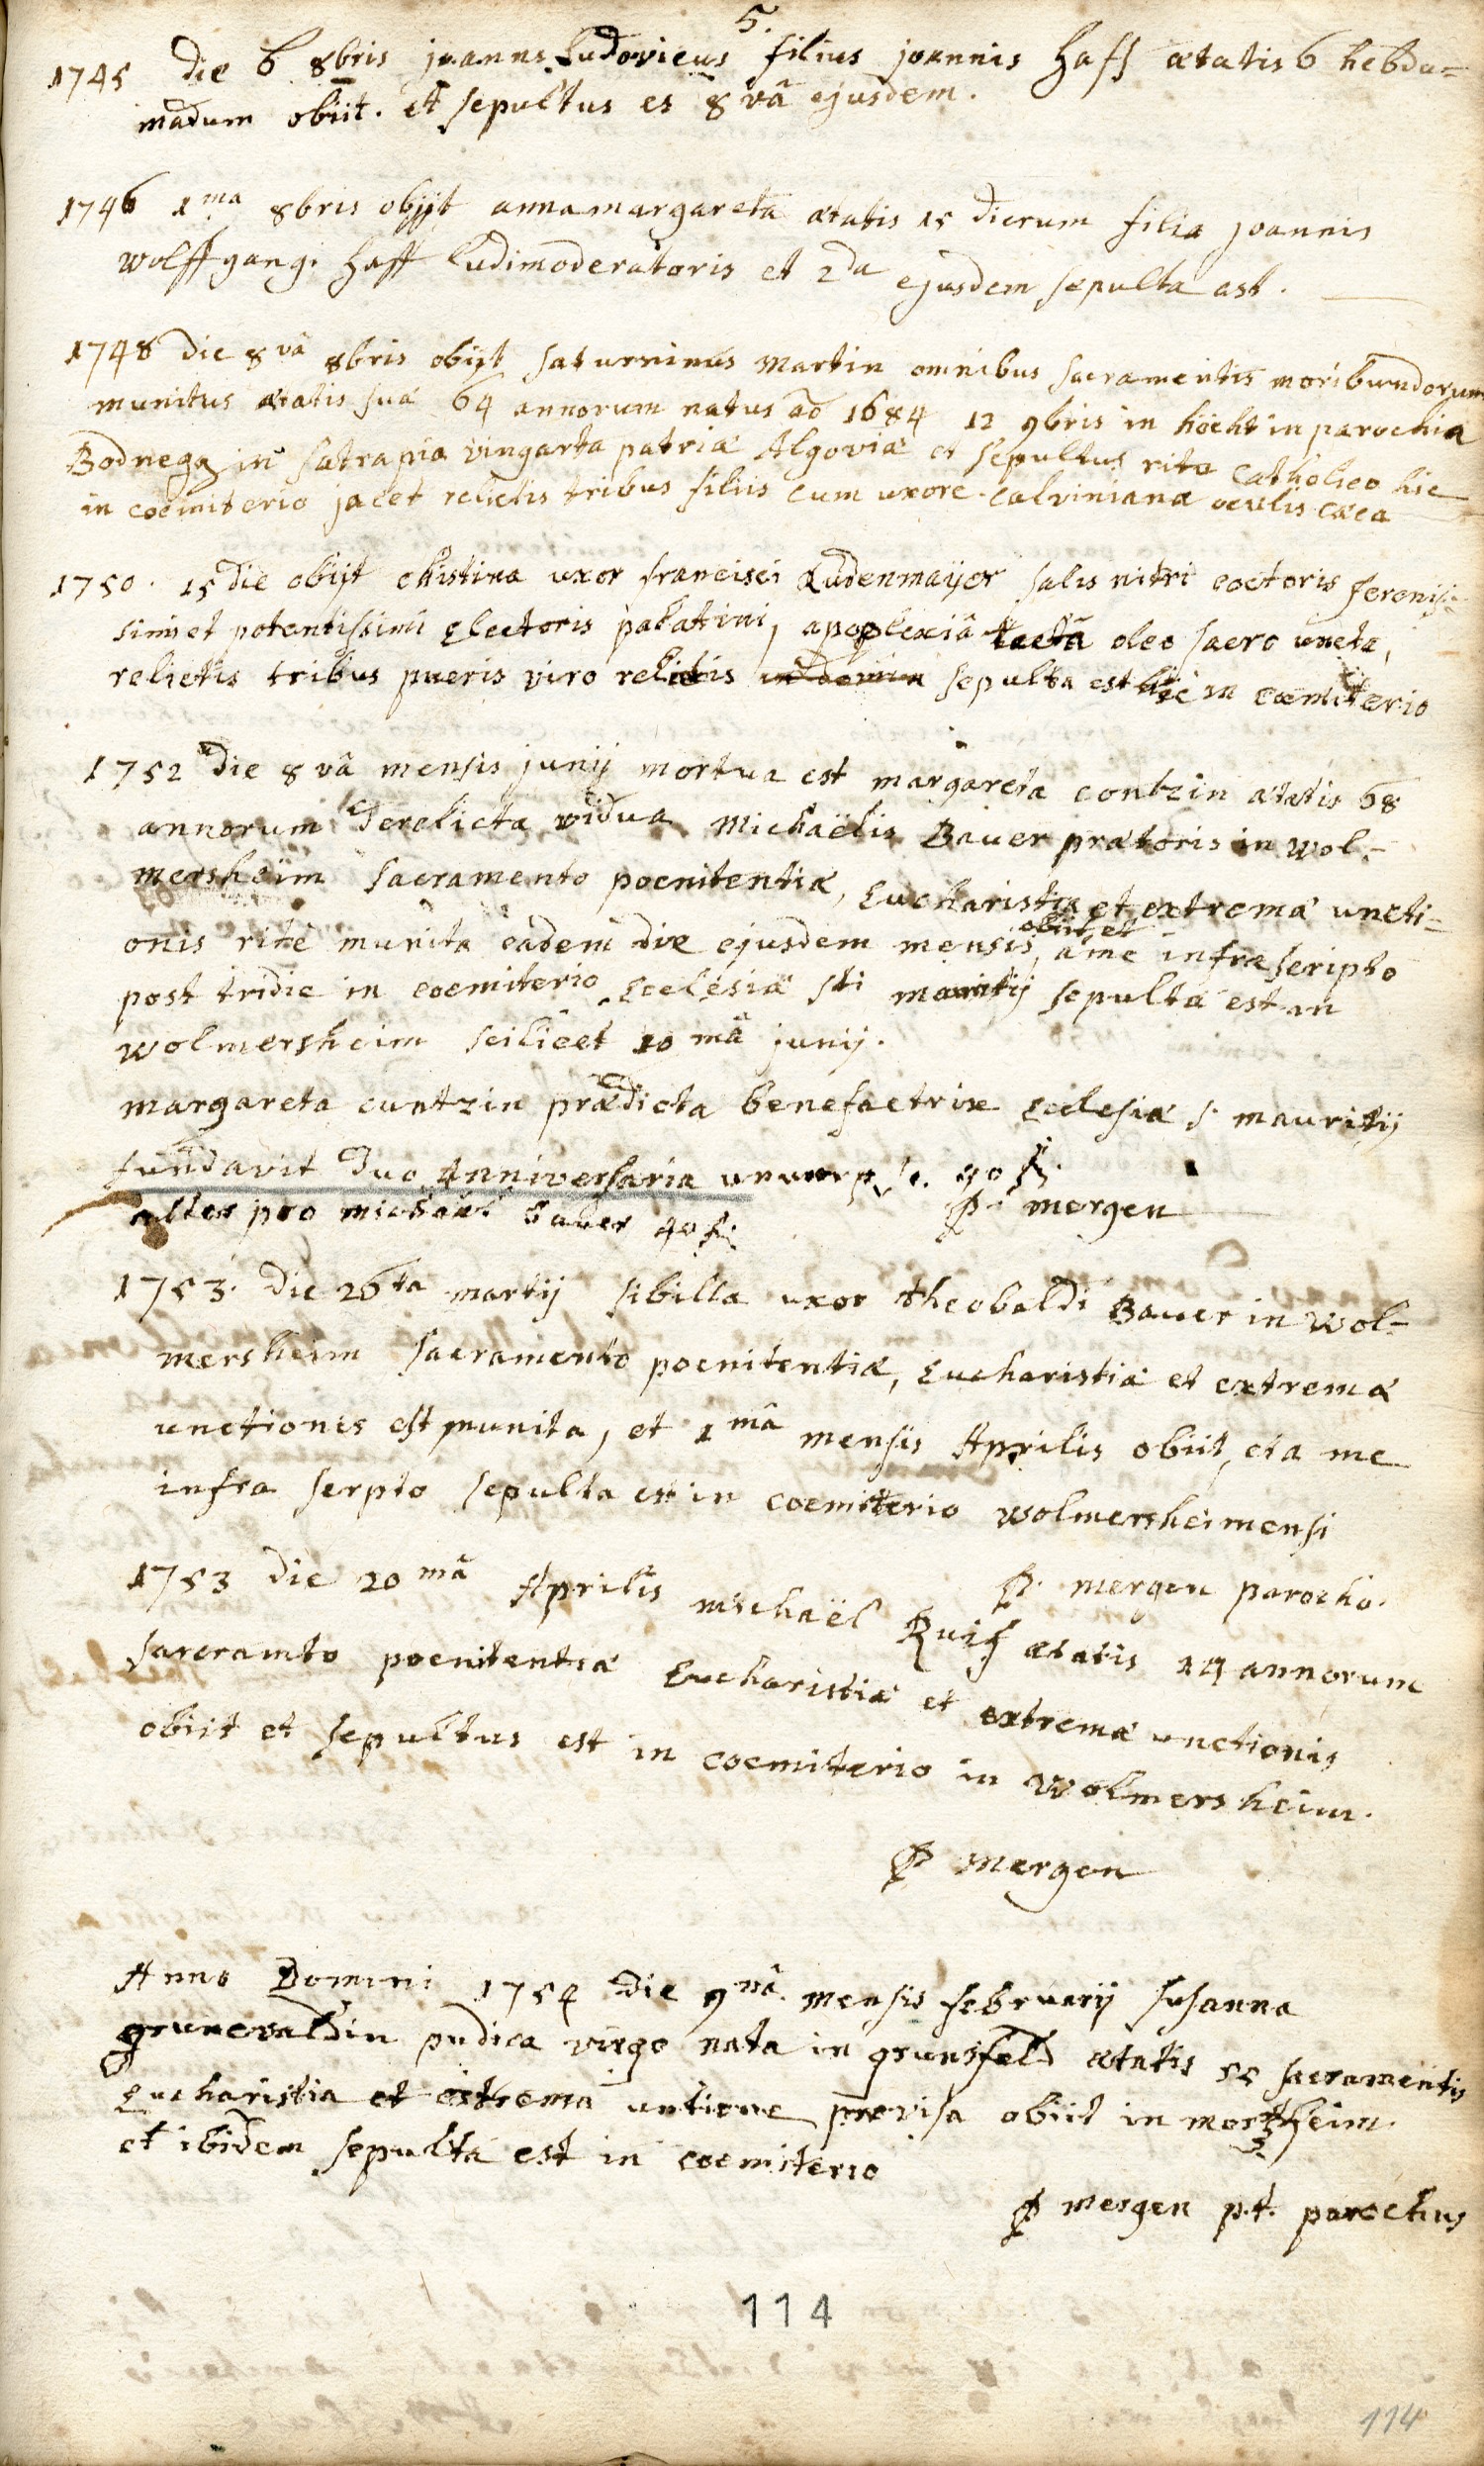 5.
1745 die 6 8bris joannes Ludovicus filius joannis Haff ætatis 6 hebdo=
madum obiit. et sepultus es 8vâ ejusdem.
1746 1ma 8bris obijt anna margareta ætatis 15 dierum filia joannis
wolffgangi Haff Ludimoderatoris et 2da ejusdem sepulta est.
1748 die 8vâ 8bris obijt saturninus Martin omnibus sacramentis moribundorum
munitus ætatis suæ 64 annorum natus ao 1684 12 9bris in höcht in parochia
Bodnegg in satrapia vingarta patriæ Algoviæ et sepultus rito catholico hic
in coemiterio jacet relictis tribus filiis cum uxore calviniana oculis cæca
1750. 15 die obijt christina uxor francisci Ludenmayer salis nitri coctoris serenis=
simi et potentissimi Electoris palatini, apoplexiâ tactâ oleo sacro uncta,
relictis tribus pueris viro relictis sepulta est hic in cœmiterio
1752 die 8vâ mensis junij mortua est margareta contzin ætatis 68
annorum derelicta vidua Michaëlis Bauer prætoris in wol=
mersheim sacramento poenitentiæ, Eucharistiæ et extremæ uncti=
onis ritè munita eâdem die ejusdem mensis obiit et à me infra scripto
post tridie in coemiterio Ecclesiæ sti mauritij sepulta est in
wolmersheim scilicet 10mâ junij.
margareta cuntzin prædicta benefactrix Ecclesiæ s. mauritij
fundavit duo Anniversaria unum p. se. 40 fl.
alter pro michael bauer 40 fl. P. mergen
1753. die 26ta martij sibilla uxor theobaldi Bauer in wol=
mersheim sacramento poenitentiæ, Eucharistiæ et extremæ
unctionis est munita, et 1mâ mensis Aprilis obiit, et a me
infra serpto sepulta est in coemiterio wolmersheimensi
P. mergen parocho.
1753 die 20mâ Aprilis michaël Ruiss ætatis 14 annorum
sacramto poenitentiæ Eucharistiæ et extremæ unctionis
obiit et sepultus est in coemiterio in wolmersheim.
P mergen
Anno Domini 1754 die 9nâ mensis februarij susanna
grunewaldin pudica virgo nata in grunsfeld ætatis 55 sacramentis
Eucharistia et extrema untione provisa obiit in mortzheim
et ibidem sepulta est in coemiterio
P mergen p.t. parochus
114
114